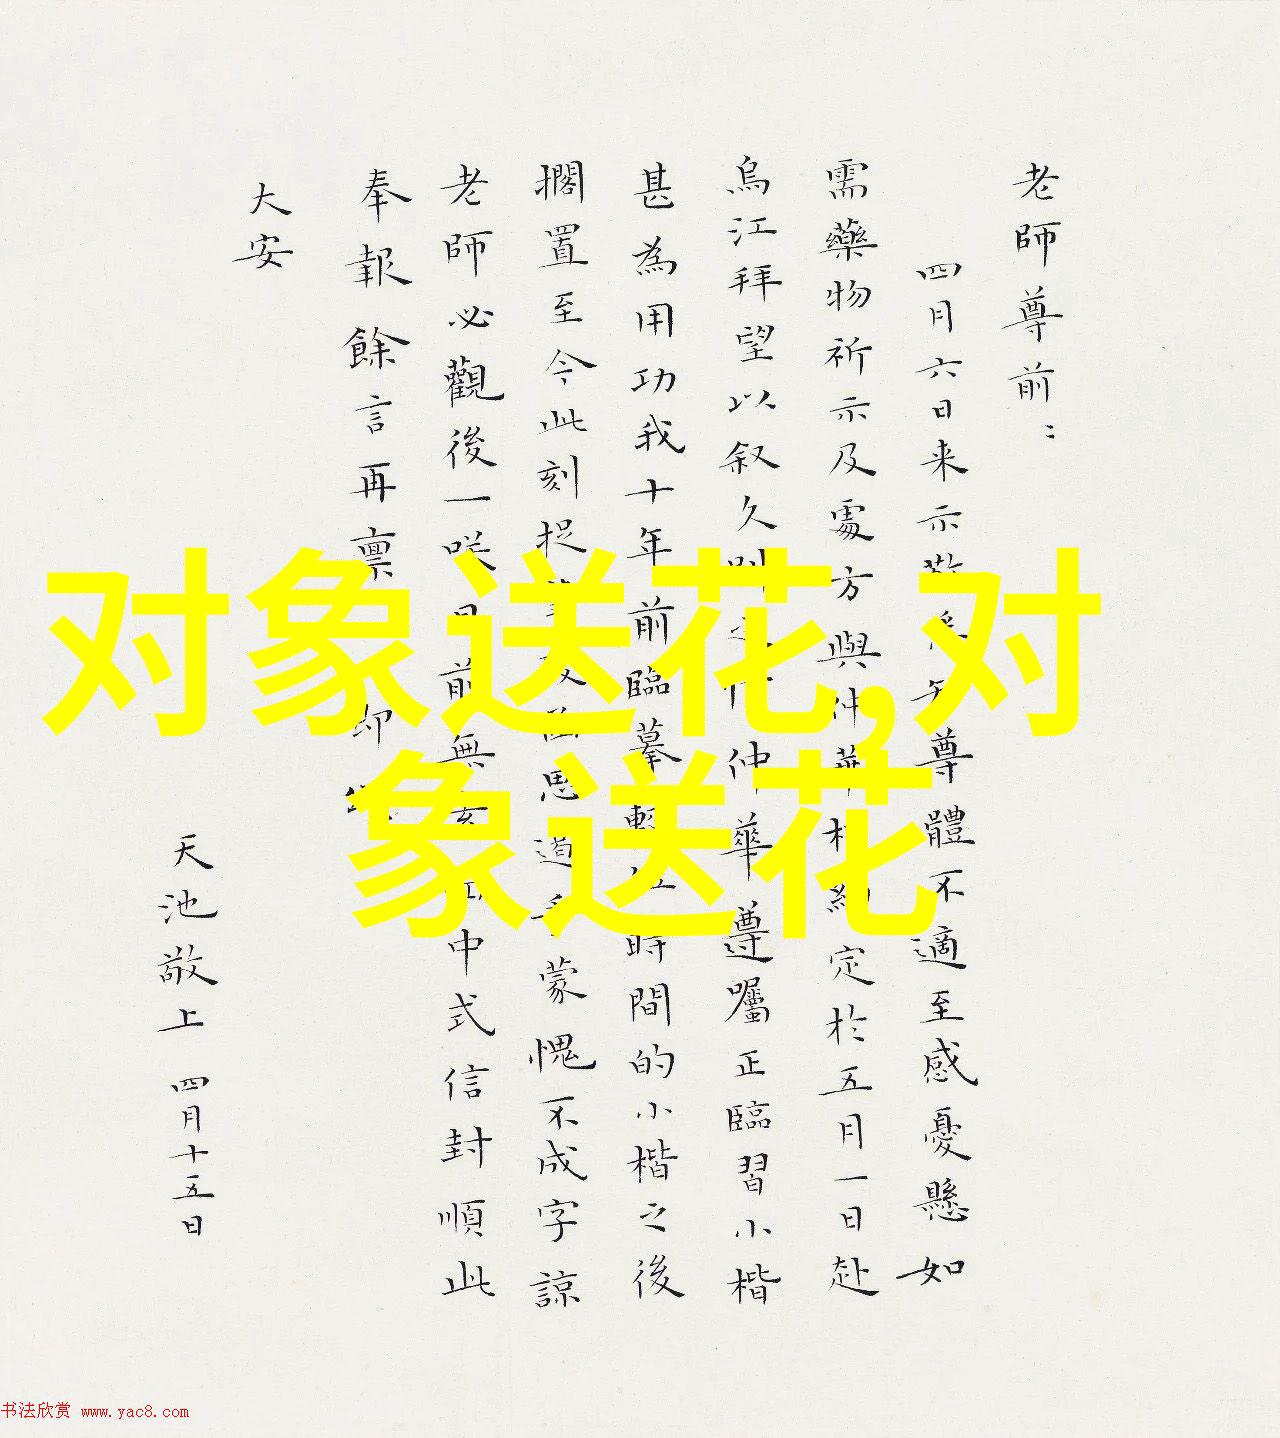 老師尊前：
四月六日来示尊體不適至感憂懸如
需藥物祈示及處方與仲華定於五月一日赴
烏江拜望以叙久仲華遵囑正臨習小楷
甚為用功我十年前臨摹時間的小楷之後
擱置至今此刻捉思道蒙愧不成字諒
老師必觀後一咲前無中式信封順此
奉報餘言再稟
大安
天池敬上 四月十五日
对象送花,对
象送花
书法欣赏 www.yac8.com